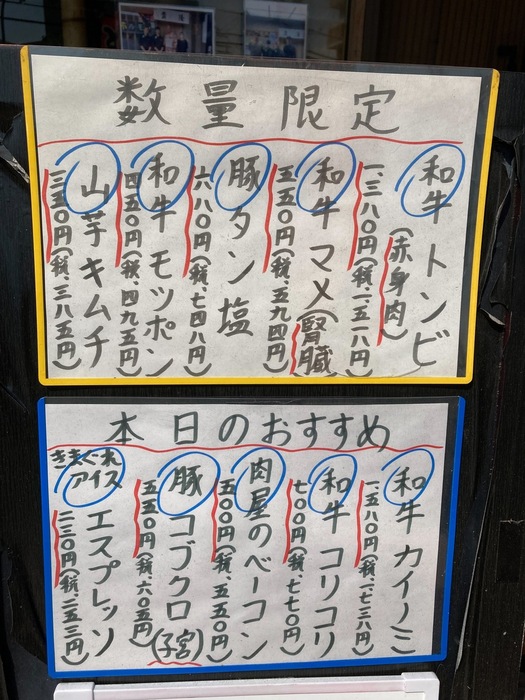 数量限定
和牛トンビ
(赤身肉)
一、三八〇円(税、一五一八円)
和牛マメ(腎臓)
五五〇円(税、五九四円)
豚タン塩
六八〇円(税、七四八円)
和牛モツポン
四五〇円(税、四九五円)
山芋キムチ
三五〇円(税、三八五円)
本日のおすすめ
和牛カイノミ
一、五八〇円(税、一七三八円)
和牛コリコリ
七〇〇円(税、七七〇円)
肉屋のベーコン
五〇〇円(税、五五〇円)
豚コブクロ(子宮)
五五〇円(税、六〇五円)
きまぐれ
アイス
エスプレッソ
二三〇円(税、二五三円)